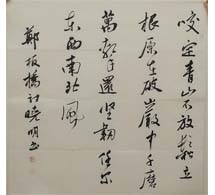 咬定青山不放鬆立
根原在破巖中千磨
萬擊還堅韌任尔
东西南北風
鄭板橋詩曉明书